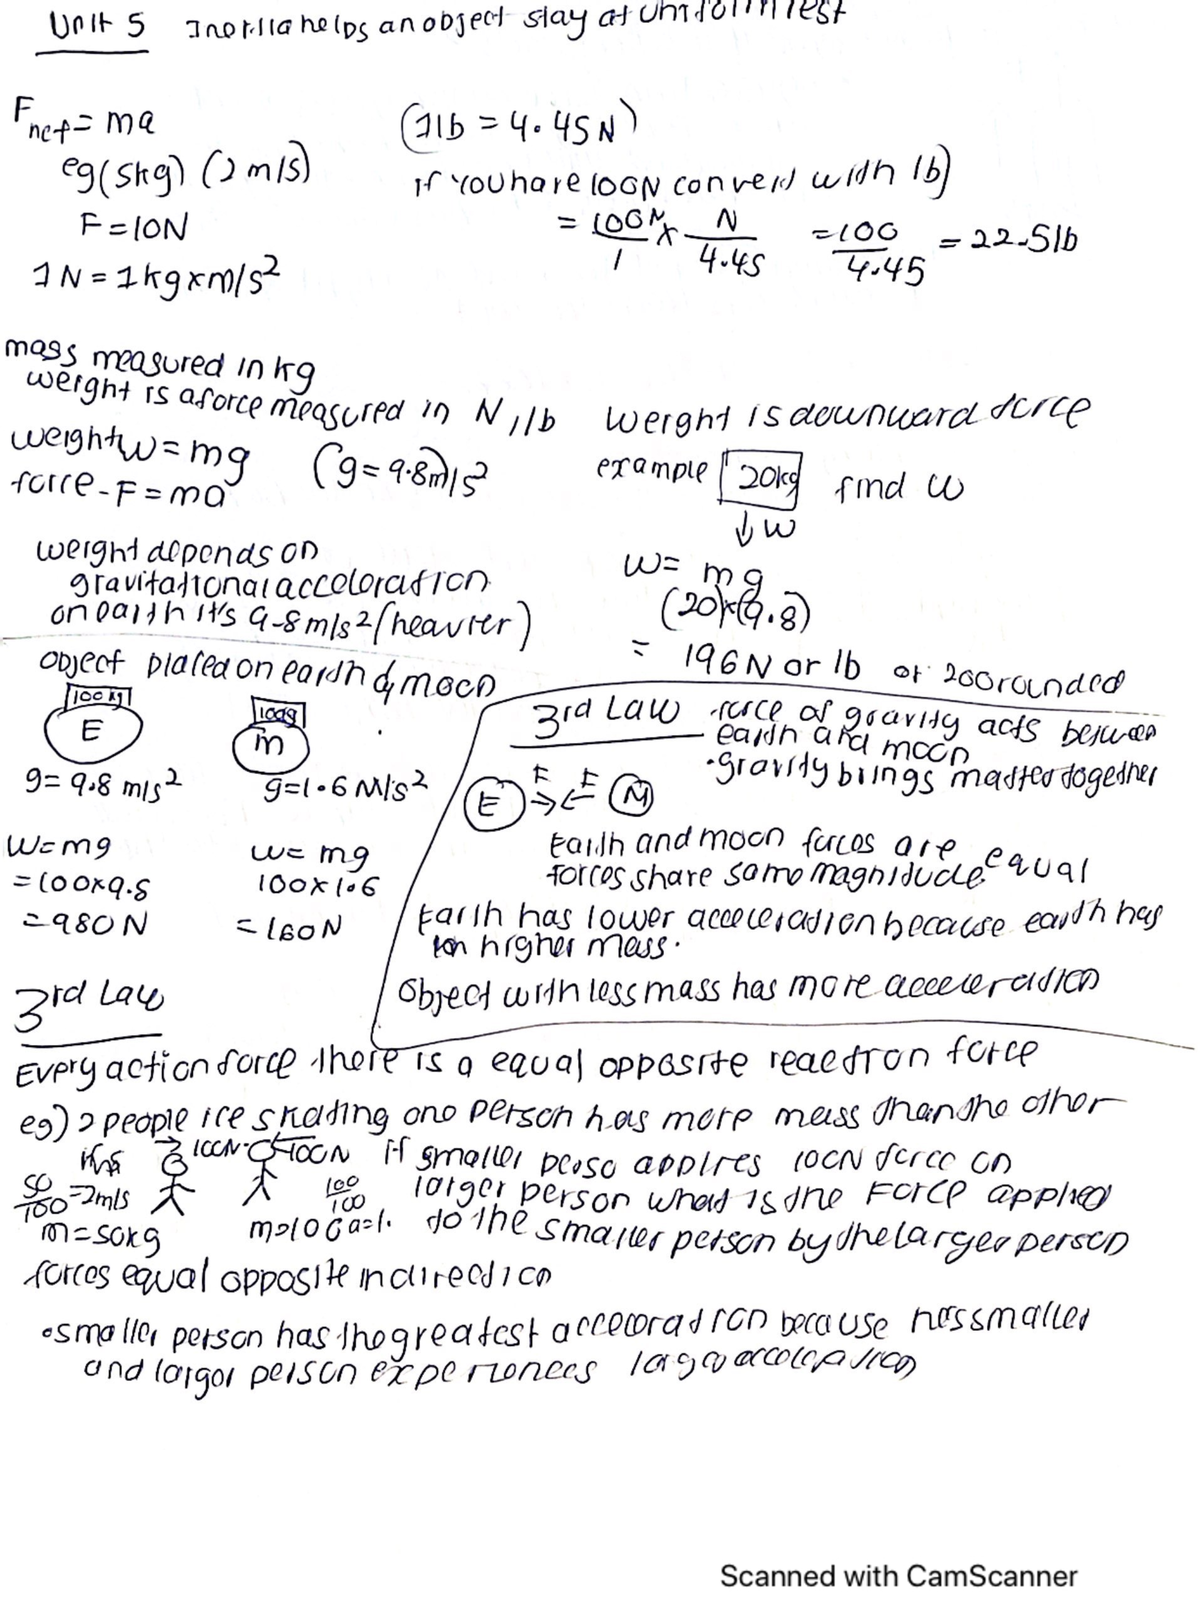 Unit 5 Inertia helps an object stay at uniform rest
Fnet = ma
eg (5kg) (2 m/s)
F = 10N
1 N = 1 kg x m/s²
(1lb = 4.45N)
if you have 100N convert with lb)
= 100N/1 x N/4.45 = 100/4.45 = 22.5lb
mass measured in kg
weight is a force measured in N, lb
weight w = mg (g = 9.8m/s²)
force - F = ma
weight depends on
gravitational acceloration
on earth it's 9.8 m/s² (heavier)
weight is downward force
example 20kg find w
↓ w
w = mg
(20)x(9.8)
= 196N or lb or 200 rounded
object placed on earth & moon
100kg 100g
E m
g = 9.8 m/s² g = 1.6 M/s²
w = mg w = mg
= 100x9.8 100 x 1.6
= 980N = 160N
3rd Law force of gravity acts between
earth and moon
• gravity brings matter together
E F F M
Earth and moon forces are equal
forces share same magnitude
Earth has lower acceleration because earth has
higher mass.
Object with less mass has more acceleration
3rd Law
Every action force there is a equal opposite reaction force
eg) 2 people ice skating one person has more mass than the other
100N 100N if smaller perso applies 100N force on
50/100 = 2m/s 100/100 larger person what is the Force applied
m = 50kg m=100 a=1. to the smaller person by the larger person
forces equal opposite in direction
• smaller person has the greatest acceloration because smaller
and larger person experiences acceloration
Scanned with CamScanner